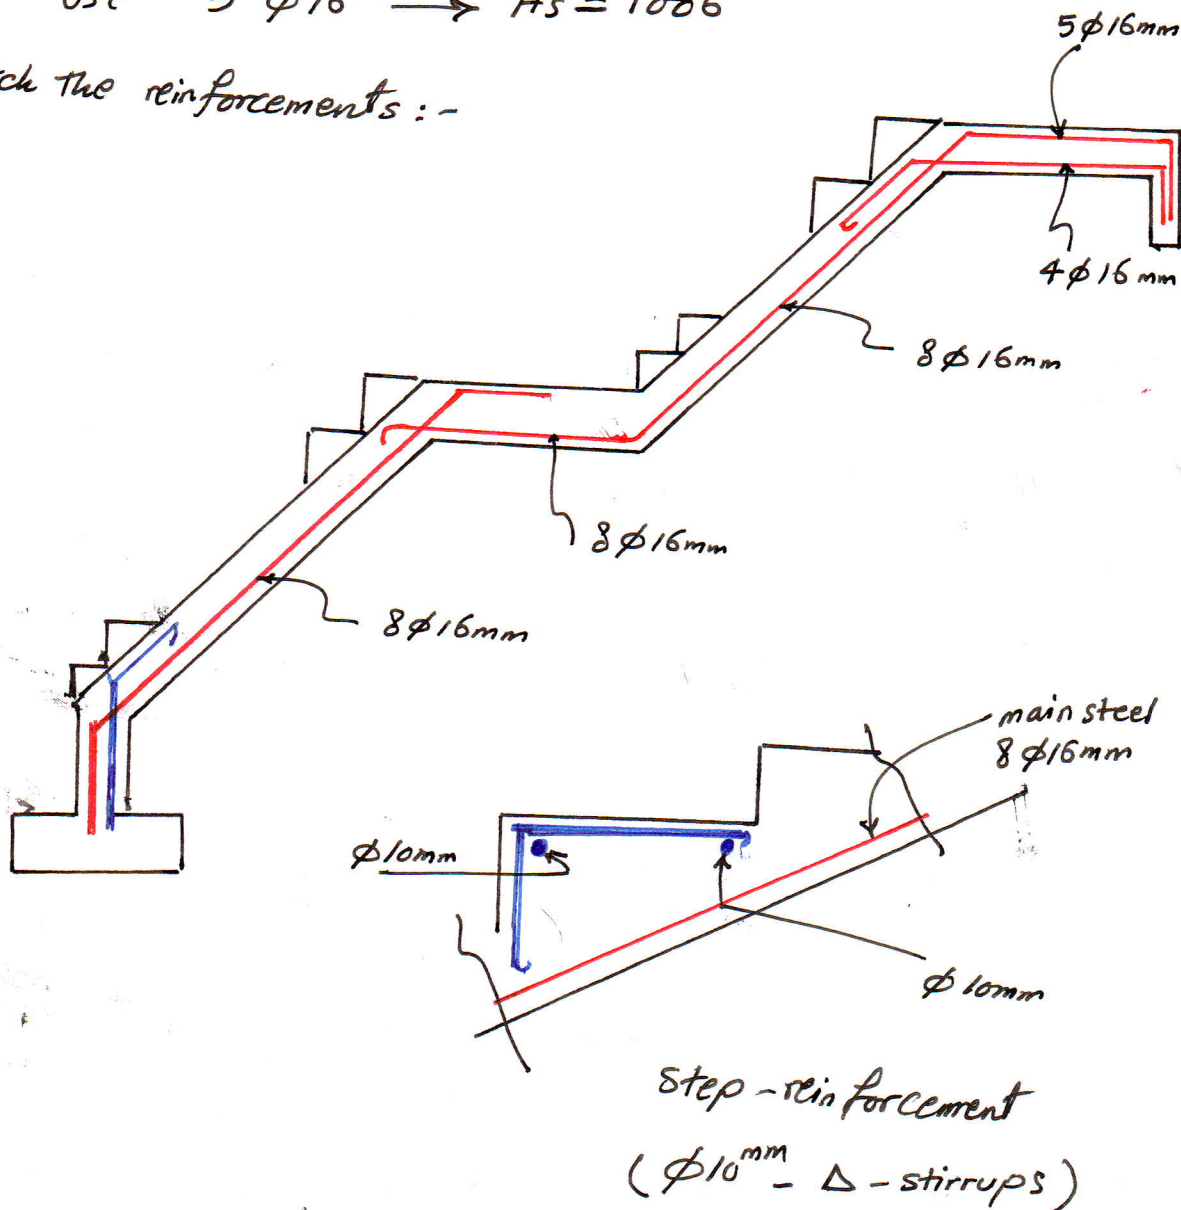 5 φ16 → As = 1006
5φ16mm
the reinforcements :-
4φ16mm
8φ16mm
8φ16mm
8φ16mm
main steel
8φ16mm
φ10mm
φ10mm
step-reinforcement
(φ10mm - Δ - stirrups)